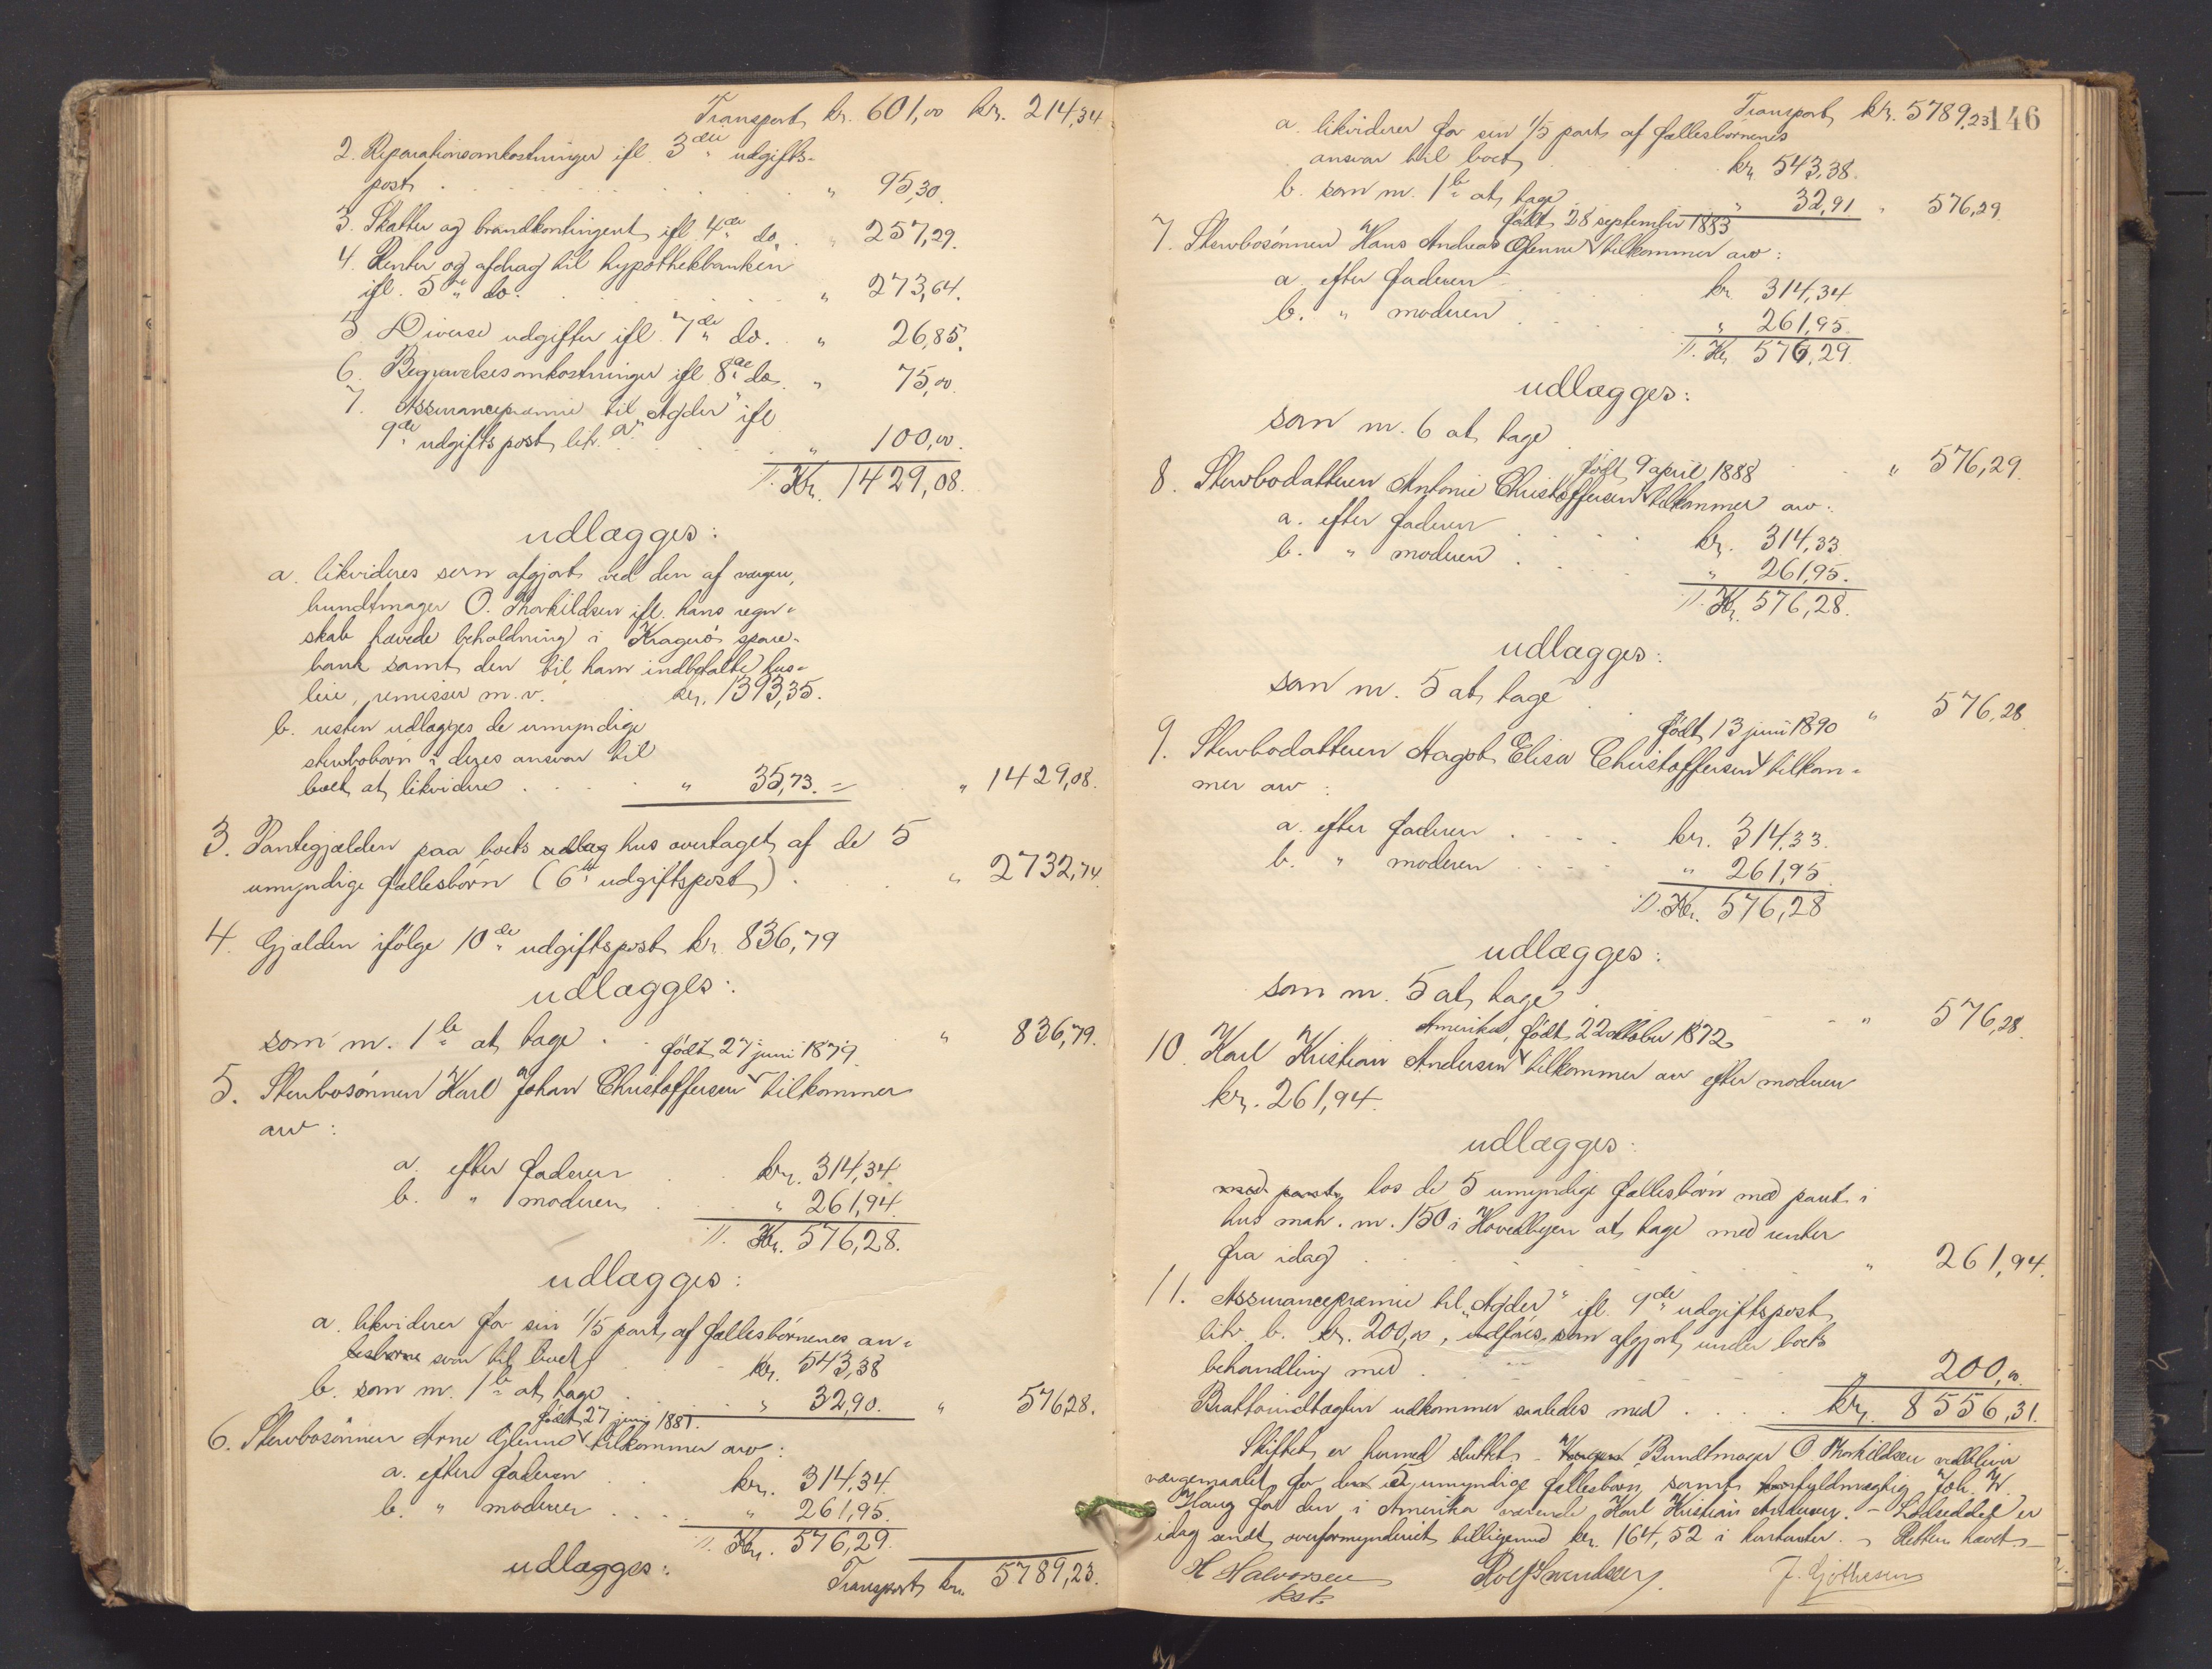 Transport kr. 601,00 kr. 214,34
2. Reparationsomkostninger ifl. 3die udgifts-
post . . . . . . . " 95,30.
3. Skatter og brandkontingent ifl. 4de do. " 257,29.
4. Renter og afdrag til hypothekbanken
ifl. 5te do. . . . . . . " 273,64.
5. Diverse udgifter ifl. 7de do. . " 26,85.
6. Begravelsesomkostninger ifl. 8de do. " 75,00.
7. Assurancepræmie til "Agder" ifl.
9de udgiftspost, litr. a. . . . " 100,00.
Kr. 1429,08.
udlægges:
a. likvideres som afgjort ved den af værgen,
bundtmager O. Thorkildsen ifl. hans regn-
skab hævede beholdning i Kragerø spare-
bank samt den til ham indbetalte hus-
leie, remisser m. v. kr. 1393,35.
b. resten udlægges de umyndige
stervbobørn i deres ansvar til
boet at likvidere . . . . " 35,73. = " 1429,08.
3. Pantegjælden paa boets udlag hus overtaget af de 5
umyndige fællesbørn (6te udgiftspost) . . . " 2732,74.
4. Gjælden ifølge 10de udgiftspost kr. 836,79
udlægges:
som nr. 1b at tage . . . " 836,79.
født 27 juni 1879.
5. Stervbosønnen Karl Johan Christoffersen tilkommer
arv:
a. efter faderen . . kr. 314,34.
b. " moderen . . " 261,94.
Kr. 576,28.
udlægges:
a. likviderer for sin 1/5 part af fællesbørnenes an-
svar til boet . . . kr. 543,38
b. som nr. 1b at tage . . . " 32,90. " 576,28.
født 27 juni 1881.
6. Stervbosønnen Arne Glenne tilkommer arv:
a. efter faderen . . kr. 314,34.
b. " moderen . . . . " 261,95.
Kr. 576,29.
udlægges:
Transport kr. 5789,23.
Transport kr. 5789,23 146
a. likviderer for sin 1/5 part af fællesbørnenes
ansvar til boet . . kr. 543,38.
b. som nr. 1b at tage . . " 32,91 " 576,29.
født 28 september 1883
7. Stervbosønnen Hans Andreas Glenne tilkommer arv:
a. efter faderen . . . kr. 314,34
b. " moderen . . . " 261,95.
Kr. 576,29.
udlægges:
som nr. 6 at tage . . . " 576,29.
født 9 april 1888
8. Stervbodatteren Antonie Christoffersen tilkommer arv:
a. efter faderen . . . . kr. 314,33
b. " moderen . . . " 261,95.
Kr. 576,28.
udlægges:
som nr. 5 at tage . . " 576,28
født 13 juni 1890
9. Stervbodatteren Aagot Elisa Christoffersen tilkom-
mer arv:
a. efter faderen . . . . kr. 314,33.
b. " moderen . . . . " 261,95.
Kr. 576,28
udlægges:
som nr. 5 at tage . . . " 576,28
Amerika, født 22 oktober 1872
10. Karl Kristian Andersen tilkommer arv efter moderen
kr. 261,94.
udlægges:
med part hos de 5 umyndige fællesbørn med pant i
hus matr. nr. 150 i Hovedbyen at tage med renter
fra idag . . . . . " 261,94.
11. Assurancepræmie til "Agder" ifl. 9de udgiftspost,
litr. b. kr. 200,00, udføres som afgjort under boets
behandling med . . . . . " 200,00
Bruttoindtægten udkommer saaledes med . . . . kr. 8556,31.
Skiftet er hermed sluttet. - Bundtmager O. Thorkildsen vedbliver
værgemaalet for de 5 umyndige fællesbørn samt fuldmægtig Joh. W.
Haug for den i Amerika værende Karl Kristian Andersen. - Lodseddel er
idag sendt overformynderiet tilligemed kr. 164,52 i kontanter. - Retten hævet. -
H Halvorsen
kst.
Rolf Svendsen.
J. Gjøthesen